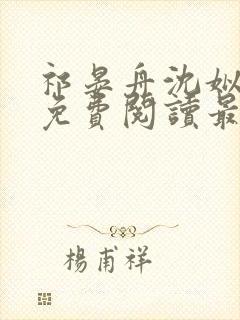 祁晏舟沈姒
免費閱讀最
楊甫祥